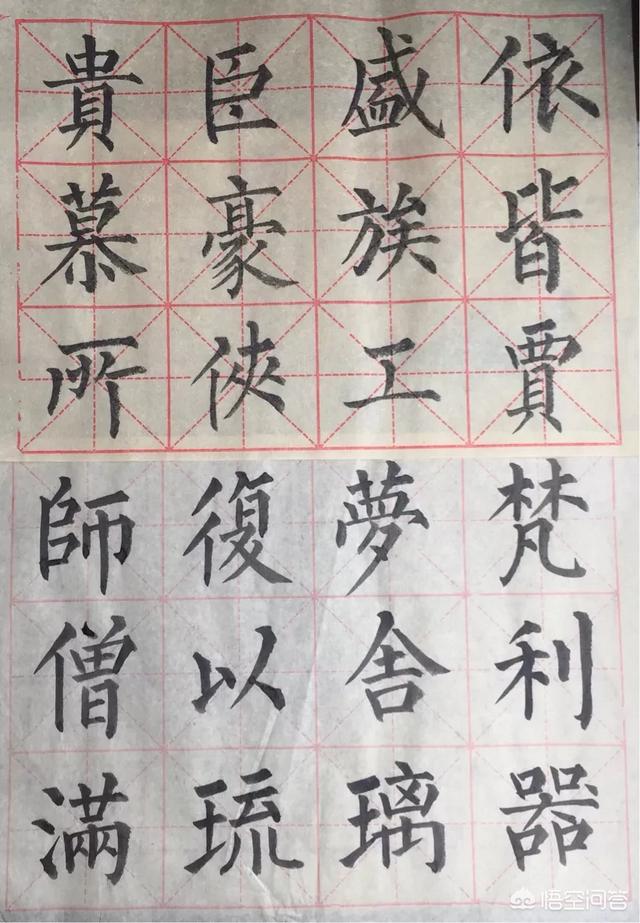 貴臣盛依
慕豪族皆
所俠工賈
師復夢梵
僧以舍利
滿琉璃器
悟空问答